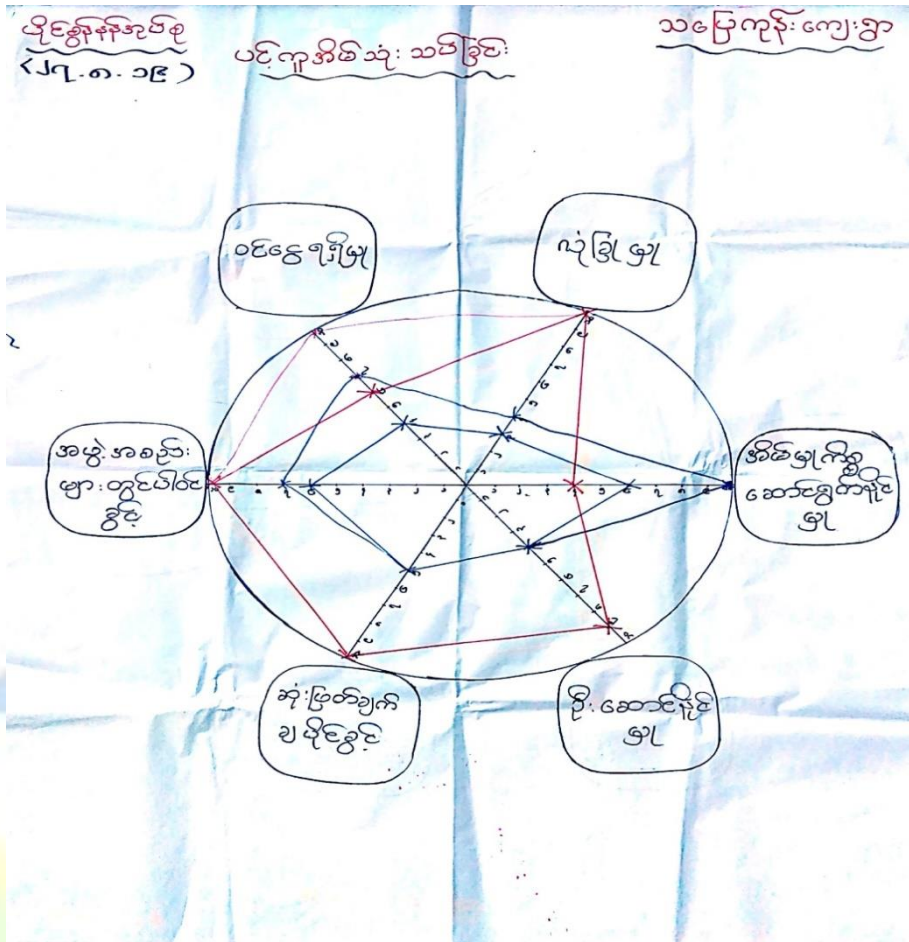 (၂၇.၈.၁၉)
ပင့်ကူအိမ်သုံးသပ်ခြင်း
သပြေကုန်းကျေးရွာ
ဝင်ငွေရရှိမှု
လုံခြုံမှု
အဖွဲ့အစည်း
များတွင်ပါဝင်
ခွင့်
အိမ်မှုကိစ္စ
ဆောင်ရွက်နိုင်
မှု
ဆုံးဖြတ်ချက်
ချပိုင်ခွင့်
ဦးဆောင်နိုင်
မှု